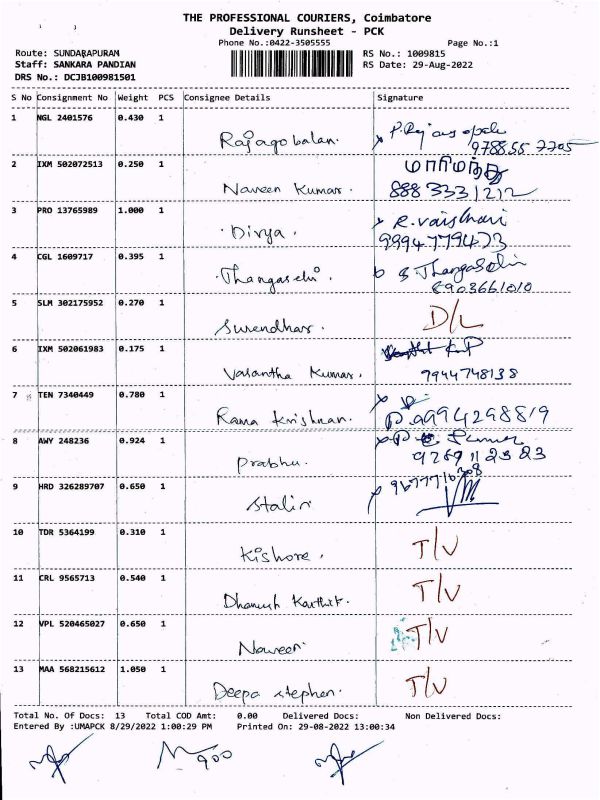 THE PROFESSIONAL COURIERS, Coimbatore
Delivery Runsheet - PCK
Phone No.:0422-3505555 Page No.:1
Route: SUNDARAPURAM RS No.: 1009815
Staff: SANKARA PANDIAN RS Date: 29-Aug-2022
DRS No.: DCJB100981501
S No Consignment No Weight PCS Consignee Details Signature
1 NGL 2401576 0.430 1
Rajagobalan.
9788 55 7705
2 IXM 502072513 0.250 1 மாரிமுத்து
Naveen Kumar. 888 3331212
3 PRO 13765989 1.000 1 R. Vaishnavi
Divya. 9994779473
4 CGL 1609717 0.395 1 S. Thangaselvi
Thangaselvi. 8903661010
5 SLM 302175952 0.270 1
Surendhar. D/L
6 IXM 502061983 0.175 1
Vasantha Kumar. 7944748138
7 TEN 7340449 0.780 1
Rama Krishnan. 9994298819
8 AWY 248236 0.924 1
Prabhu.
9 HRD 326289707 0.650 1
Stalin
10 TDR 5364199 0.310 1
Kishore. T/V
11 CRL 9565713 0.540 1 T/V
Dhanush Karthik.
12 VPL 520465027 0.650 1 T/V
Naveen.
13 MAA 568215612 1.050 1 T/V
Deepa Stephen.
Total No. Of Docs: 13 Total COD Amt: 0.00 Delivered Docs: Non Delivered Docs:
Entered By :UMAPCK 8/29/2022 1:00:29 PM Printed On: 29-08-2022 13:00:34